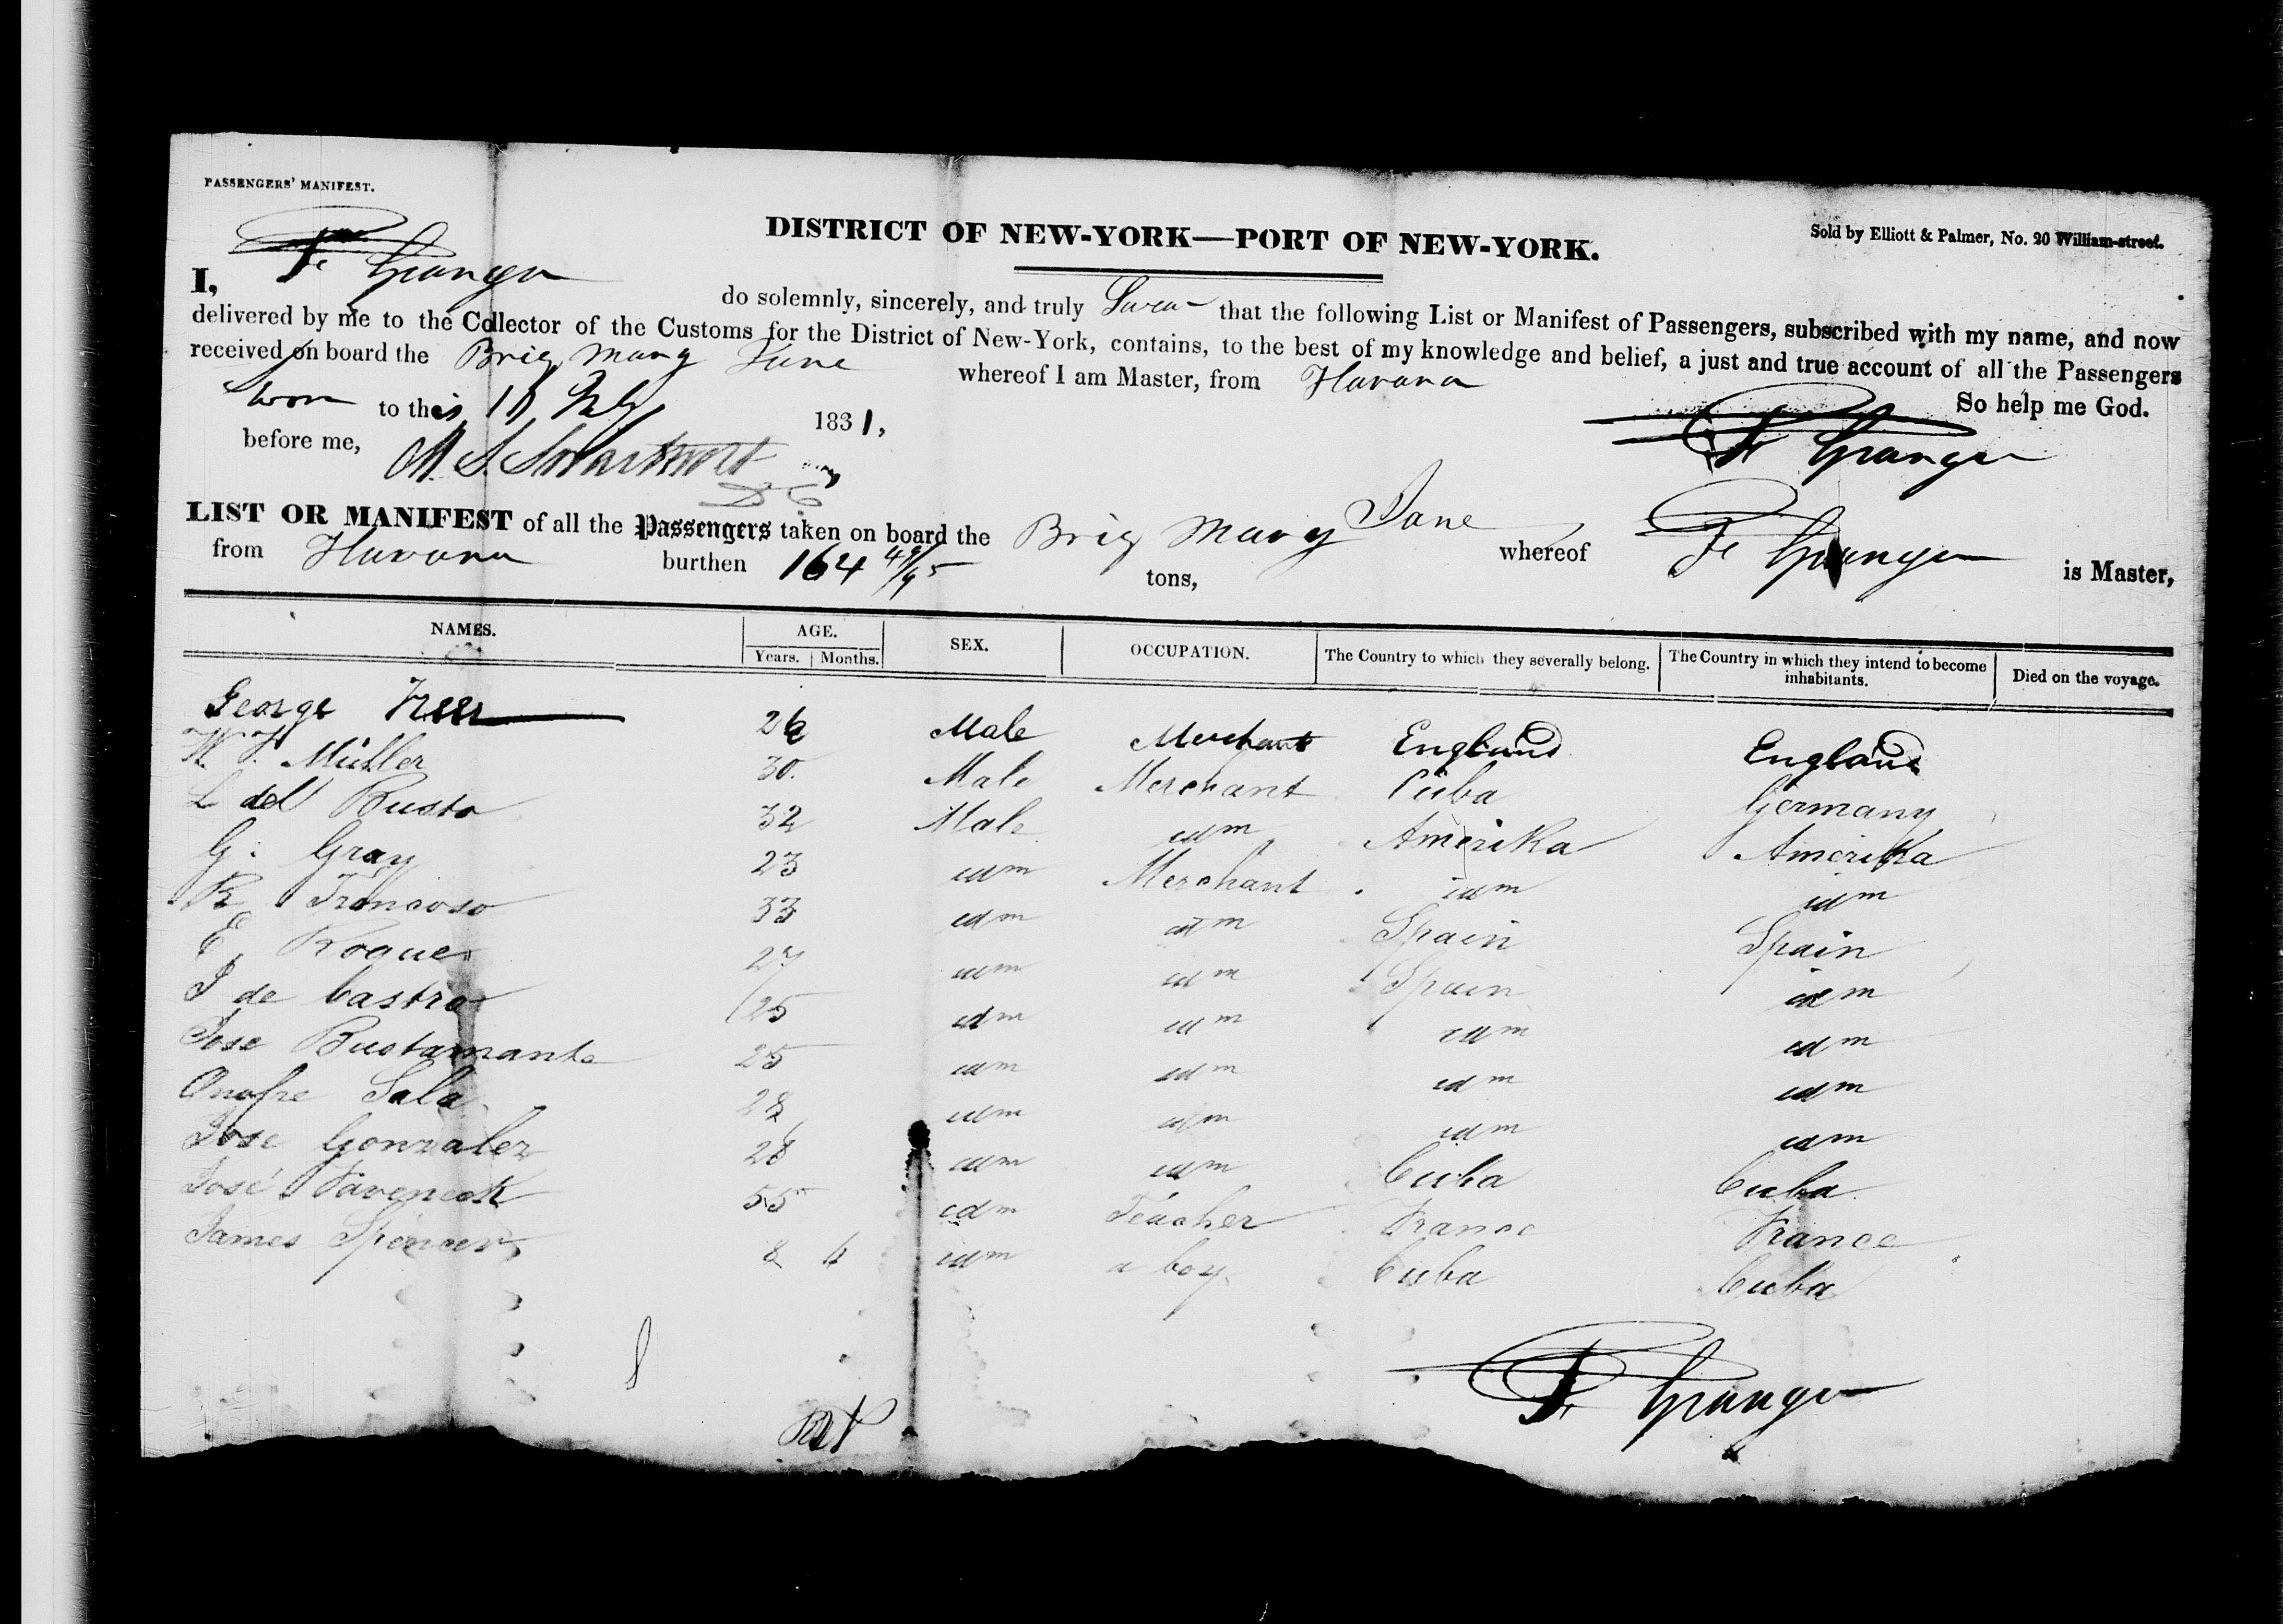 PASSENGERS' MANIFEST.
DISTRICT OF NEW-YORK—PORT OF NEW-YORK.
Sold by Elliott & Palmer, No. 20 William-street.
I, Granger do solemnly, sincerely, and truly that the following List or Manifest of Passengers, subscribed with my name, and now
delivered by me to the Collector of the Customs for the District of New-York, contains, to the best of my knowledge and belief, a just and true account of all the Passengers
received on board the Brig Mary Jane whereof I am Master, from Havana
So help me God.
Sworn to this 18 1831,
before me, Granger
M. S. Swartwout
LIST OR MANIFEST of all the Passengers taken on board the Brig Mary Jane whereof Granger is Master,
from Havana burthen 164 tons,
NAMES. AGE. SEX. OCCUPATION. The Country to which they severally belong. The Country in which they intend to become inhabitants. Died on the voyage.
Years. Months.
George 26 Male Merchant England England
Müller 30. Male Merchant Cuba Germany
L del Busto 32 Male idm Amerika Amerika
G. Gray 23 idm Merchant idm idm
R Troncoso 33 idm idm Spain Spain
E. Roque 27 idm idm Spain idm
J de Castro 25 idm idm idm idm
Jose Bustamante 25 idm idm idm idm
Onofre Sala 28 idm idm idm idm
Jose Gonzalez 28 idm idm Cuba Cuba
José 55 idm Teacher France France
James Spencer 8 6 idm a boy Cuba Cuba
Granger